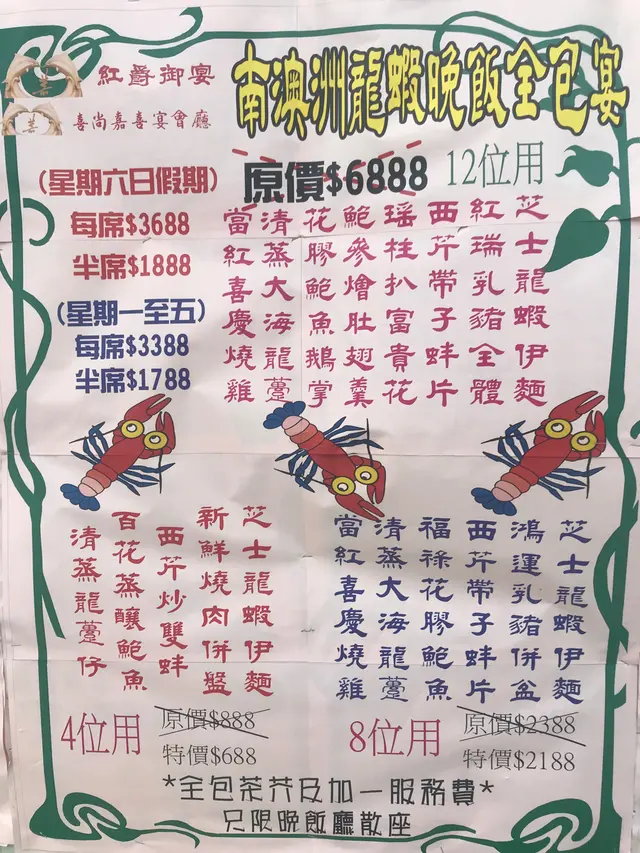 紅爵御宴
喜尚嘉喜宴會廳
南澳洲龍蝦晚飯全包宴
原價$6888
12位用
(星期六日假期)
每席$3688
半席$1888
(星期一至五)
每席$3388
半席$1788
芝士龍蝦伊麵
紅瑞乳豬全體
西芹帶子蚌片
瑤柱扒富貴花
鮑參燴肚翅羹
花膠鮑魚鵝掌
清蒸大海龍躉
當紅喜慶燒雞
芝士龍蝦伊麵
新鮮燒肉併盤
西芹炒雙蚌
百花蒸釀鮑魚
清蒸龍躉仔
4位用
原價$888
特價$688
芝士龍蝦伊麵
鴻運乳豬併盆
西芹帶子蚌片
福祿花膠鮑魚
清蒸大海龍躉
當紅喜慶燒雞
8位用
原價$2388
特價$2188
*全包茶芥及加一服務費*
只限晚飯廳散座